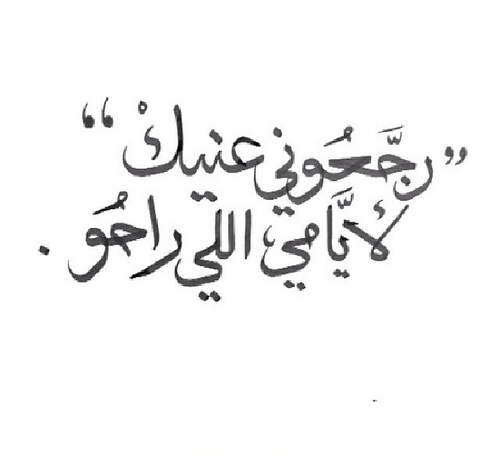 ”رجَّعُوني عنيكْ“
لأيَّامي اللي راحُو .